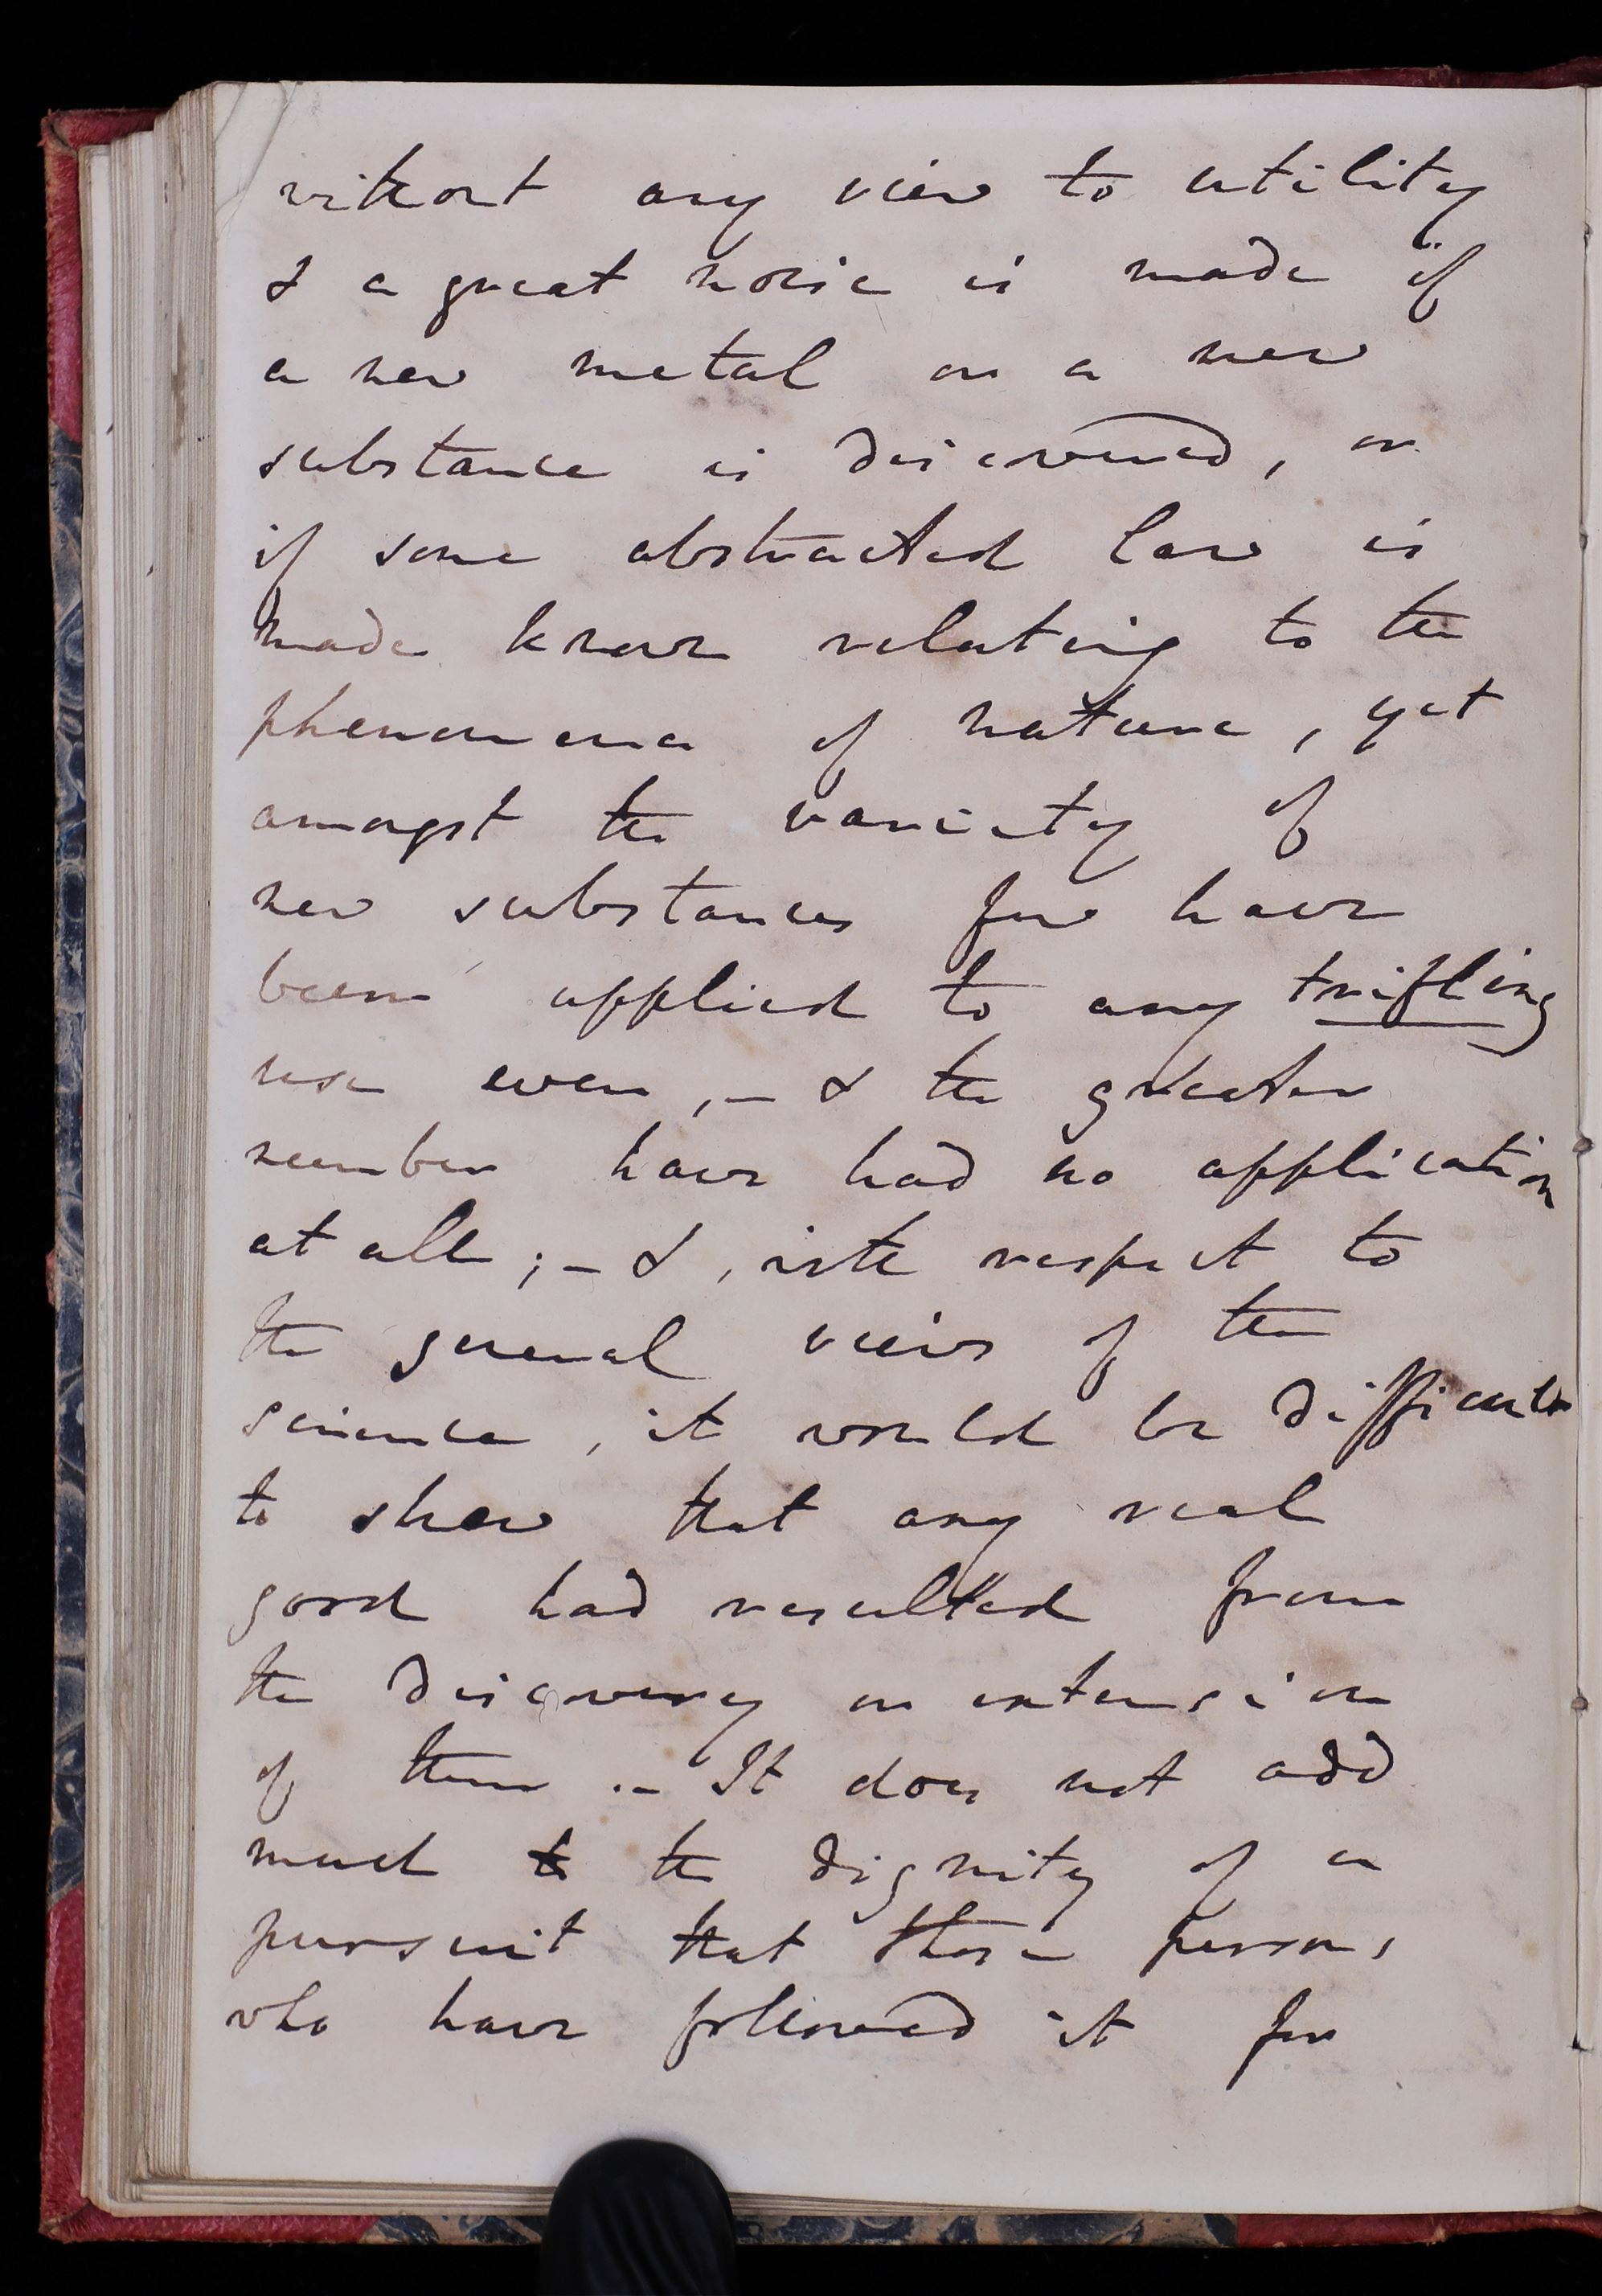 without any view to utility
& a great noise is made if
a new metal or a new
substance is discovered, or
if some abstracted law is
made known relating to the
phenomena of nature, yet
amongst the variety of
new substances few have
been applied to any trifling
use even, – & the greater
number have had no application
at all; – & , with respect to
the general views of the
science, it would be difficult
to shew that any real
good had resulted from
the discovery or extension
of them. – It does not add
much to the dignity of a
pursuit that those persons
who have followed it for